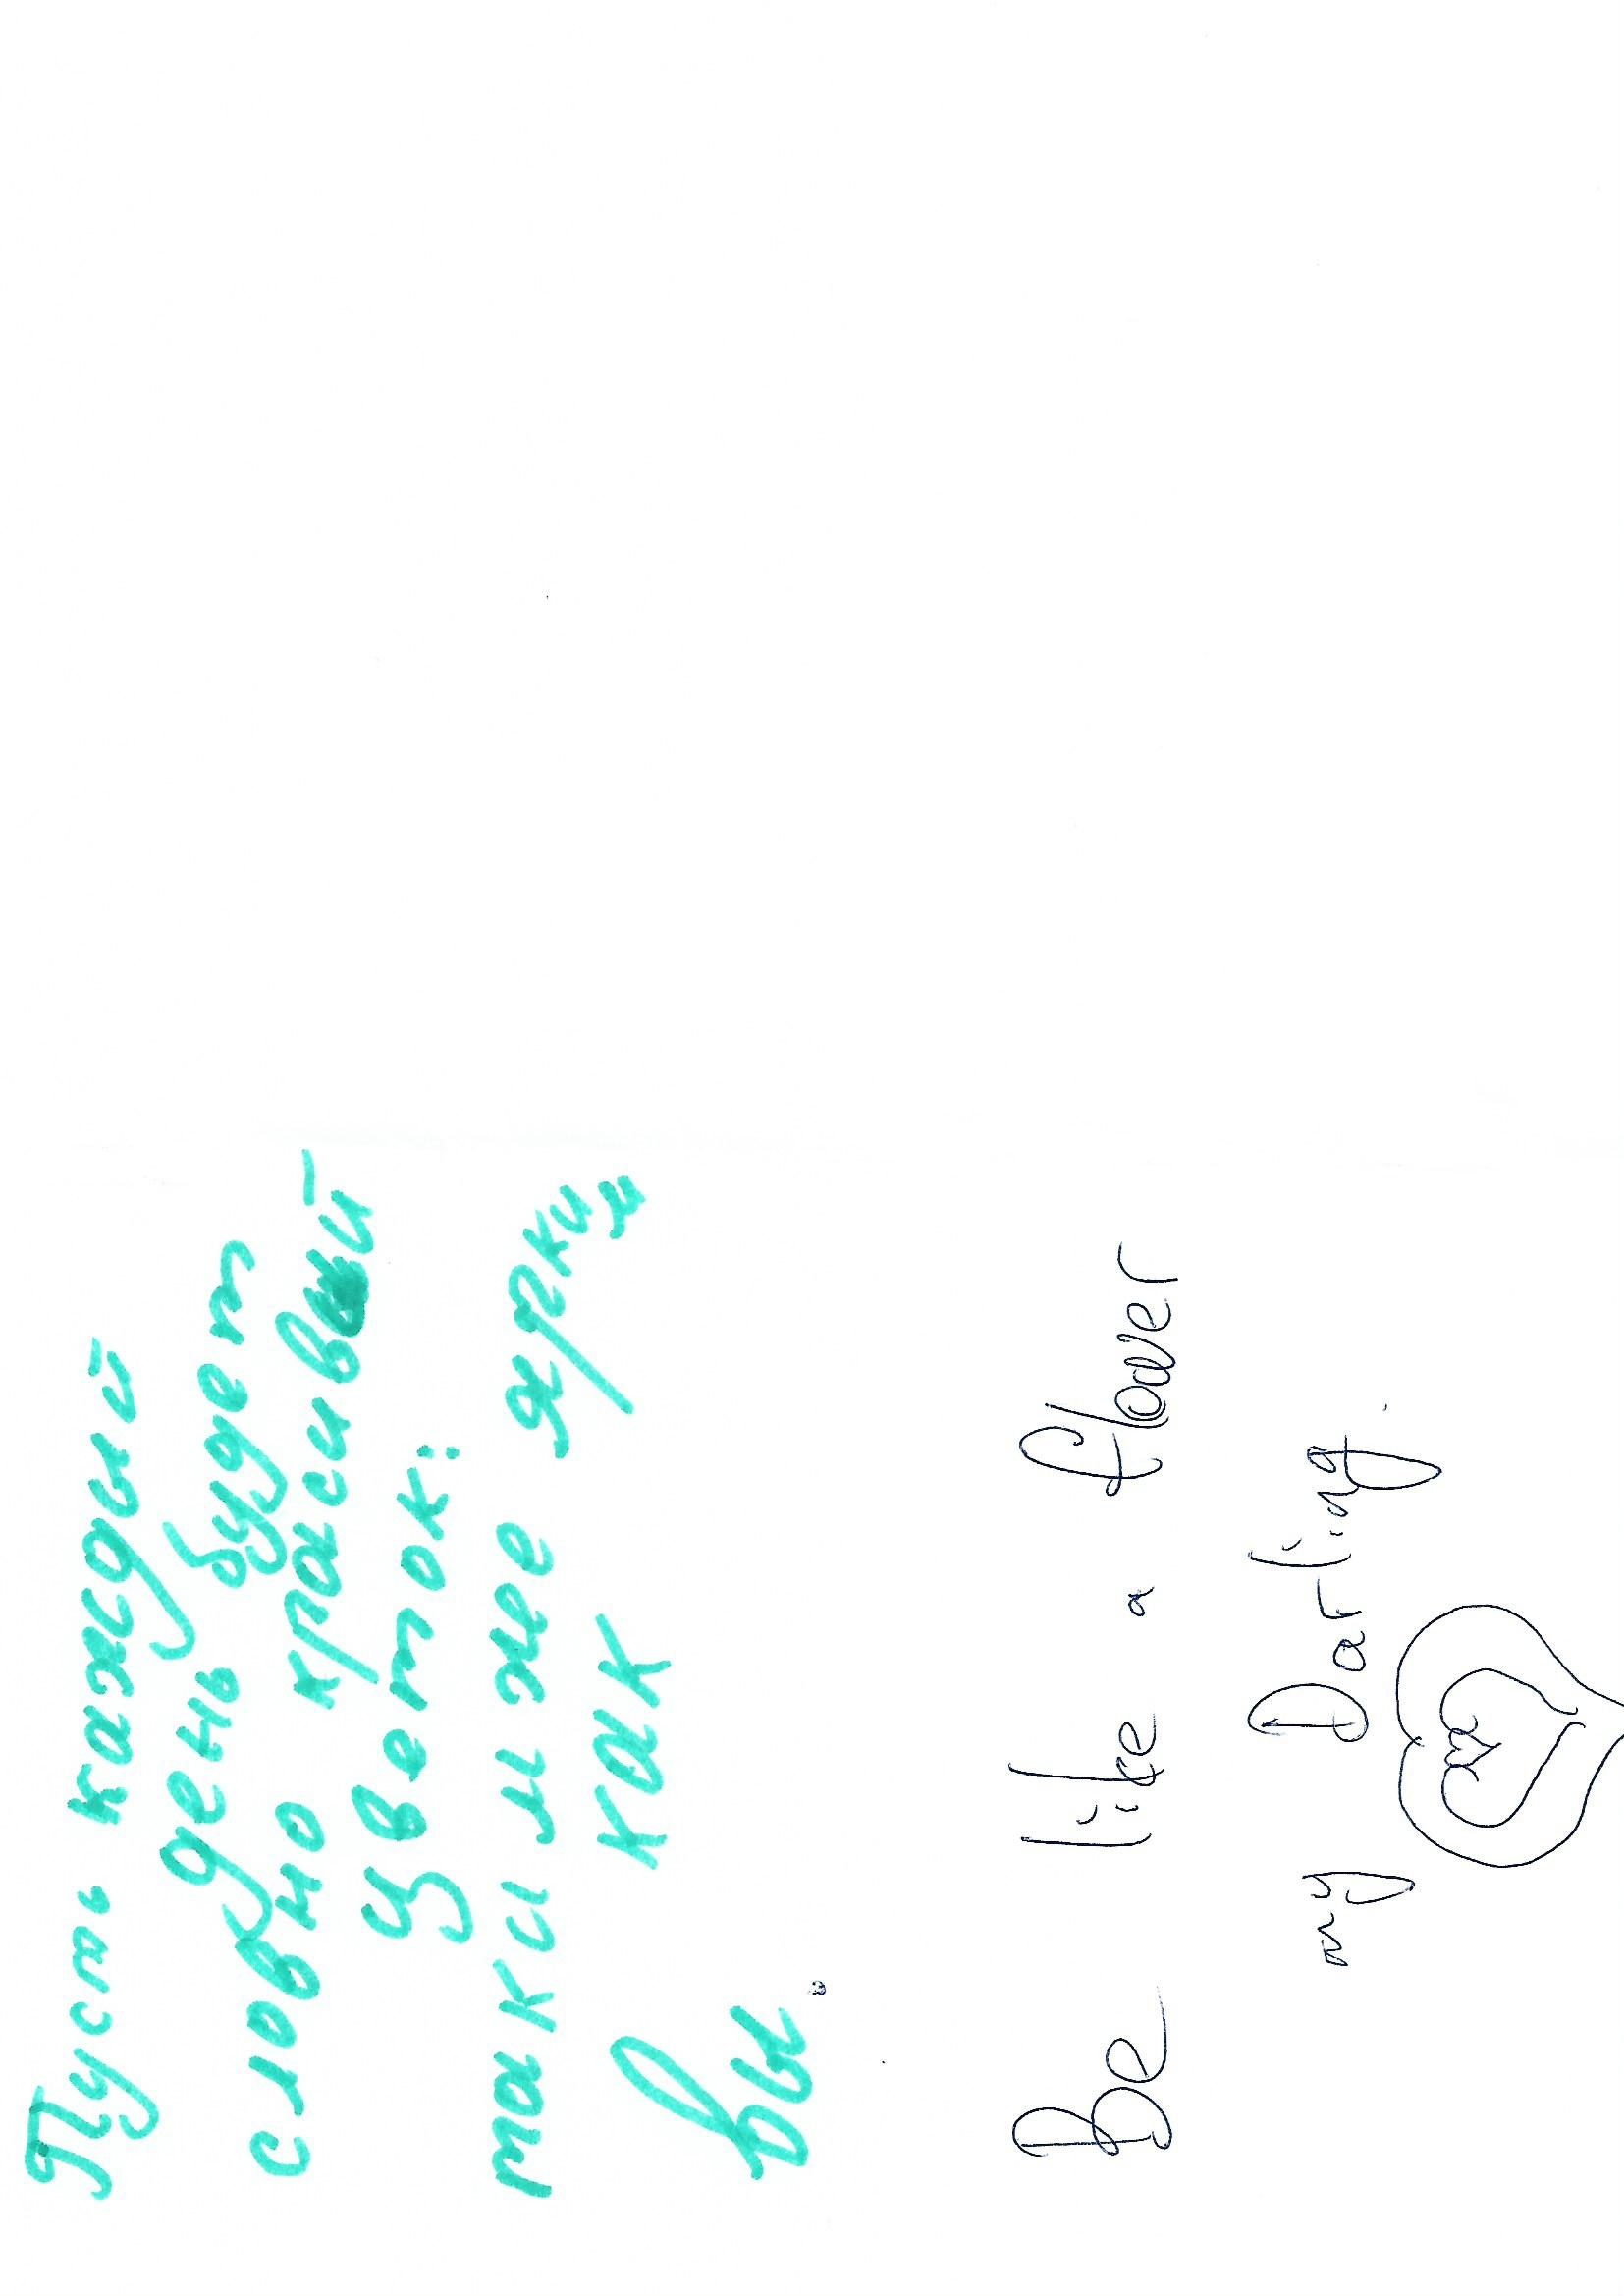 Пусть каждый
день будет
словно красивый
цветок:
таким же ярким
как
вы.
Be like a flower
my Darling.